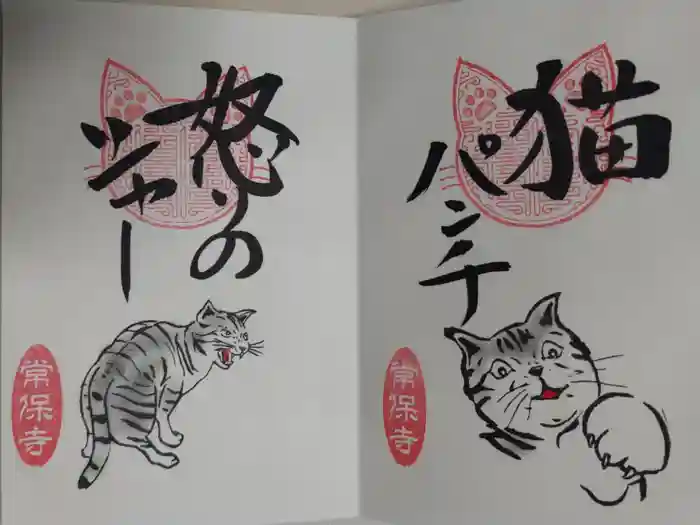 猫
パンチ
常保寺
怒りの
シャー
常保寺